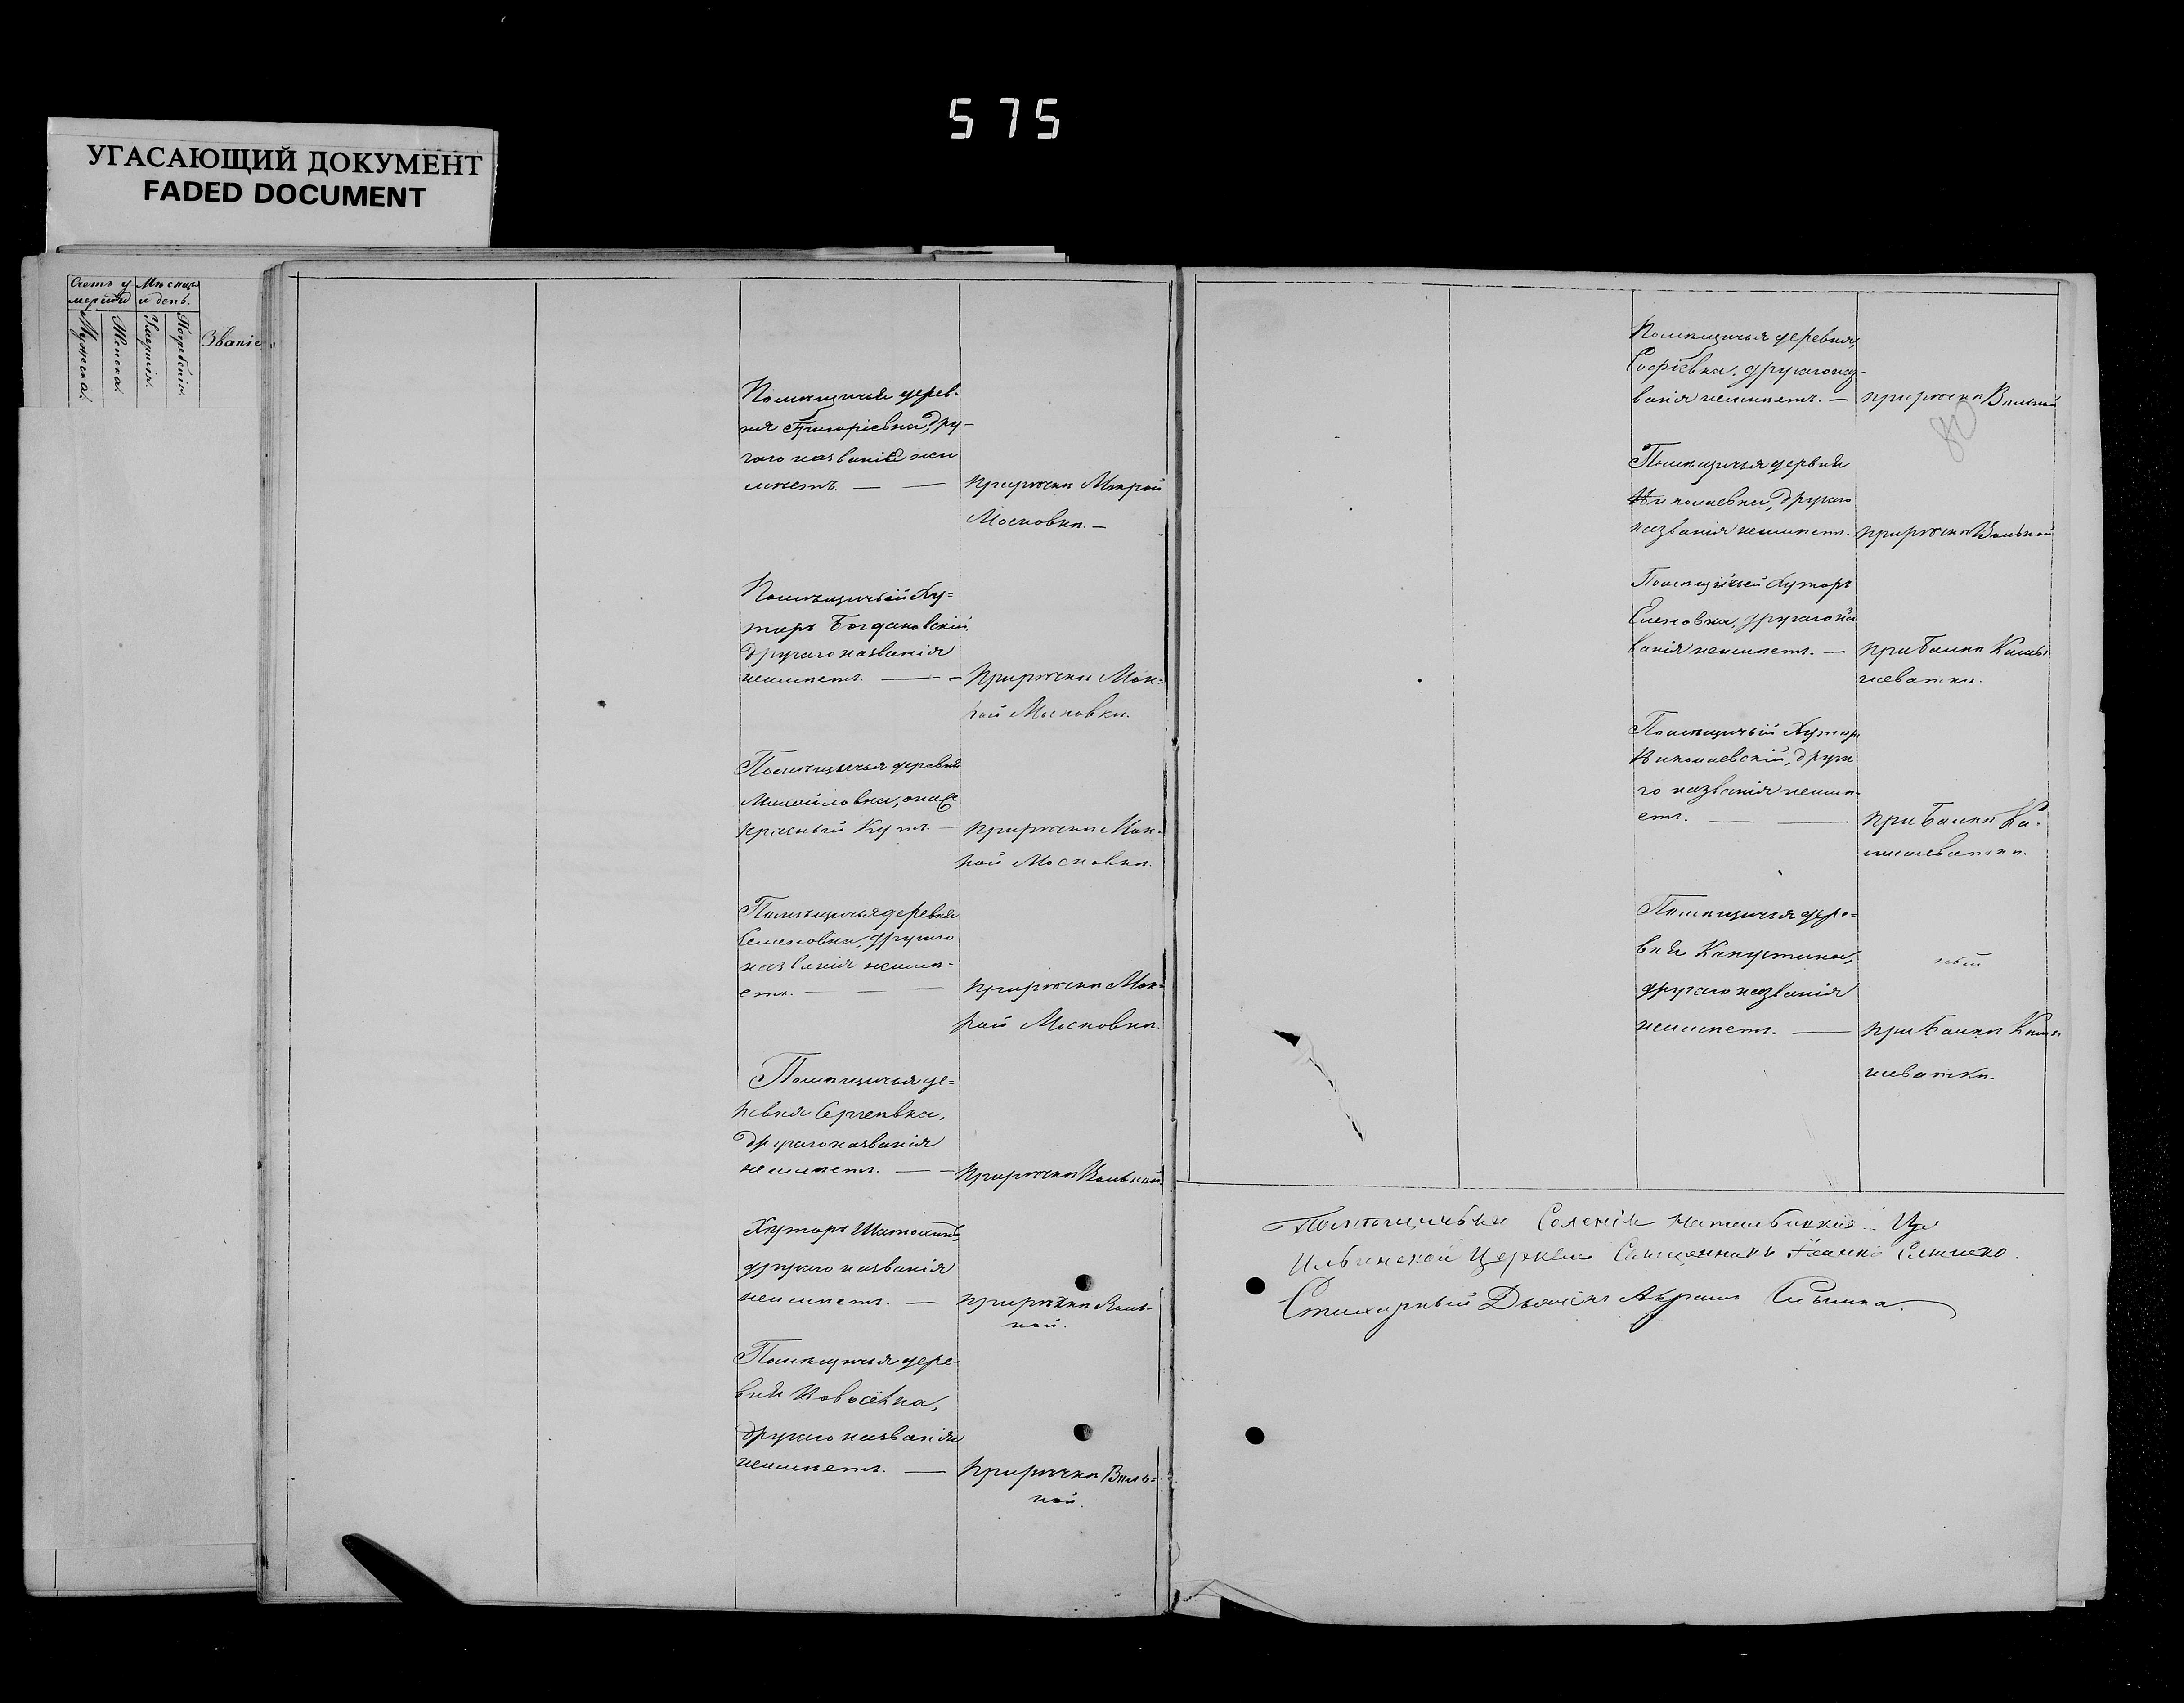 575
УГАСАЮЩИЙ ДОКУМЕНТ
FADED DOCUMENT
Счетъ у
мерши
Мѣсяцъ
и день.
Мужеска.
Женска.
Умертія.
Погребенія.
Званіе,
Помѣщичья дерев-
ня Григоріевка, дру-
гаго названія неи
мѣетъ. — —
при рѣчки Мокрой
Московки. —
Помѣщичьій Ху=
торъ Богдановскій
другаго названія
неимѣетъ. — –
при рѣчки Мок=
рой Московки.
Помѣщичья деревня
Михайловка, она
Красный Кутъ. —
при рѣчки Мок-
рой Московки.
Помѣщичья деревня
Семеновка, другаго
названія неимѣ=
етъ. — — —
при рѣчки Мок=
рой Московки.
Помѣщичья де=
ревня Сергеевка,
другаго названія
неимѣетъ. — –
при рѣчки Вольной
Хуторъ
другаго названія
неимѣетъ. —
при рѣчки Воль-
ной.
Помѣщичья дере-
вня
другаго названія
неимѣетъ. —
при рѣчки Воль=
ной.
Помѣщичья деревня
Софіевка, другаго наз-
ванія неимѣетъ. —
при рѣчки Вольной
80
Помѣщичья дервня
Николаевка, другаго
названія неимѣетъ.
при рѣчки Вольной
Помѣщичьей Хуторъ
Еленовка, другаго на
ванія неимѣетъ. —
при Балки Камы
шеватки.
Помѣщичьій Хуторъ
Николаевскій, друга
го названія неимѣ-
етъ. — —
при Балки Ка-
мышеватки.
Помѣщичья дере=
вня Капустина,
другаго названія
неимѣетъ. —
при Балки Камы-
шеватки.
Ильинской Церкви Священникъ
Стихарный Дьячекъ Абрамъ